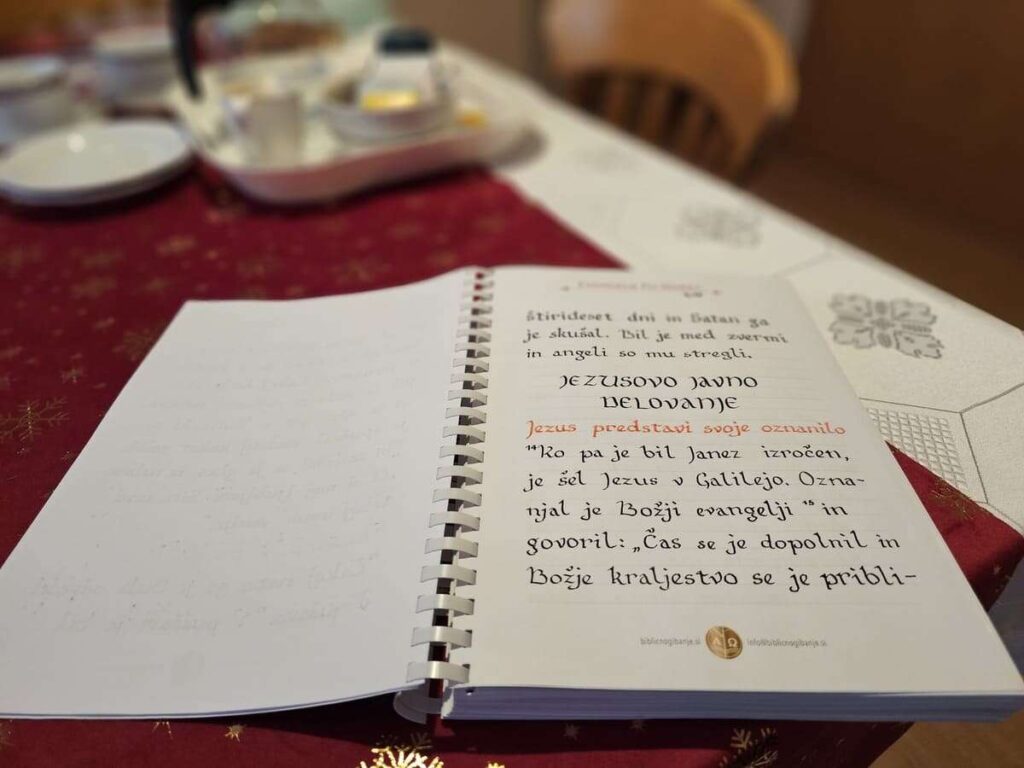 štirideset dni in Satan ga
je skušal. Bil je med zvermi
in angeli so mu stregli.
JEZUSOVO JAVNO
DELOVANJE
Jezus predstavi svoje oznanilo
¹⁴Ko pa je bil Janez izročen,
je šel Jezus v Galilejo. Ozna-
njal je Božji evangelij ¹⁵ in
govoril: „Čas se je dopolnil in
Božje kraljestvo se je pribli-
biblicnogibanje.si Α Ω info@biblicnogibanje.si